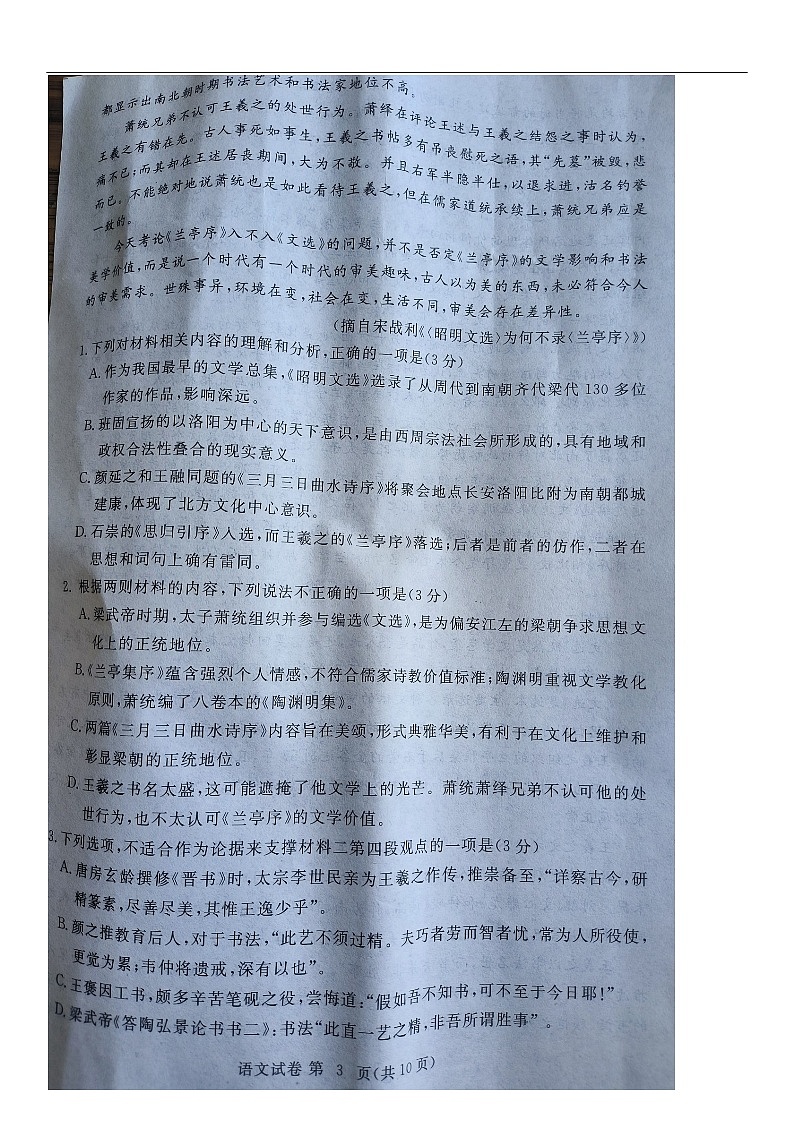 都显示出南北朝时期书法艺术和书法家地位不高。
萧统兄弟不认可王羲之的处世行为。萧绎在评论王述与王羲之结怨之事时认为，
王羲之有错在先。古人事死如事生，王羲之书帖多有吊丧慰死之语，其“先墓”被毁，悲
痛不已；而其却在王述居丧期间，大为不敬。并且右军半隐半仕，以退求进，沽名钓誉
而已。不能绝对地说萧统也是如此看待王羲之，但在儒家道统承续上，萧统兄弟应是
一致的。
今天考论《兰亭序》入不入《文选》的问题，并不是否定《兰亭序》的文学影响和书法
美学价值，而是说一个时代有一个时代的审美趣味，古人以为美的东西，未必符合今人
的审美需求。世殊事异，环境在变，社会在变，生活不同，审美会存在差异性。
（摘自宋战利《〈昭明文选〉为何不录〈兰亭序〉》）
1.下列对材料相关内容的理解和分析，正确的一项是（3分）
A.作为我国最早的文学总集，《昭明文选》选录了从周代到南朝齐代梁代130多位
作家的作品，影响深远。
B.班固宣扬的以洛阳为中心的天下意识，是由西周宗法社会所形成的，具有地域和
政权合法性叠合的现实意义。
C.颜延之和王融同题的《三月三日曲水诗序》将聚会地点长安洛阳比附为南朝都城
建康，体现了北方文化中心意识。
D.石崇的《思归引序》入选，而王羲之的《兰亭序》落选；后者是前者的仿作，二者在
思想和词句上确有雷同。
2.根据两则材料的内容，下列说法不正确的一项是（3分）
A.梁武帝时期，太子萧统组织并参与编选《文选》，是为偏安江左的梁朝争求思想文
化上的正统地位。
B.《兰亭集序》蕴含强烈个人情感，不符合儒家诗教价值标准；陶渊明重视文学教化
原则，萧统编了八卷本的《陶渊明集》。
C.两篇《三月三日曲水诗序》内容旨在美颂，形式典雅华美，有利于在文化上维护和
彰显梁朝的正统地位。
D.王羲之书名太盛，这可能遮掩了他文学上的光芒。萧统萧绎兄弟不认可他的处
世行为，也不太认可《兰亭序》的文学价值。
3.下列选项，不适合作为论据来支撑材料二第四段观点的一项是（3分）
A.唐房玄龄撰修《晋书》时，太宗李世民亲为王羲之作传，推崇备至，“详察古今，研
精篆素，尽善尽美，其惟王逸少乎”。
B.颜之推教育后人，对于书法，“此艺不须过精。夫巧者劳而智者忧，常为人所役使，
更觉为累；韦仲将遗戒，深有以也”。
C.王褒因工书，颇多辛苦笔砚之役，尝悔道：“假如吾不知书，可不至于今日耶！”
D.梁武帝《答陶弘景论书书二》：书法“此直一艺之精，非吾所谓胜事”。
语文试卷 第 3 页（共10页）